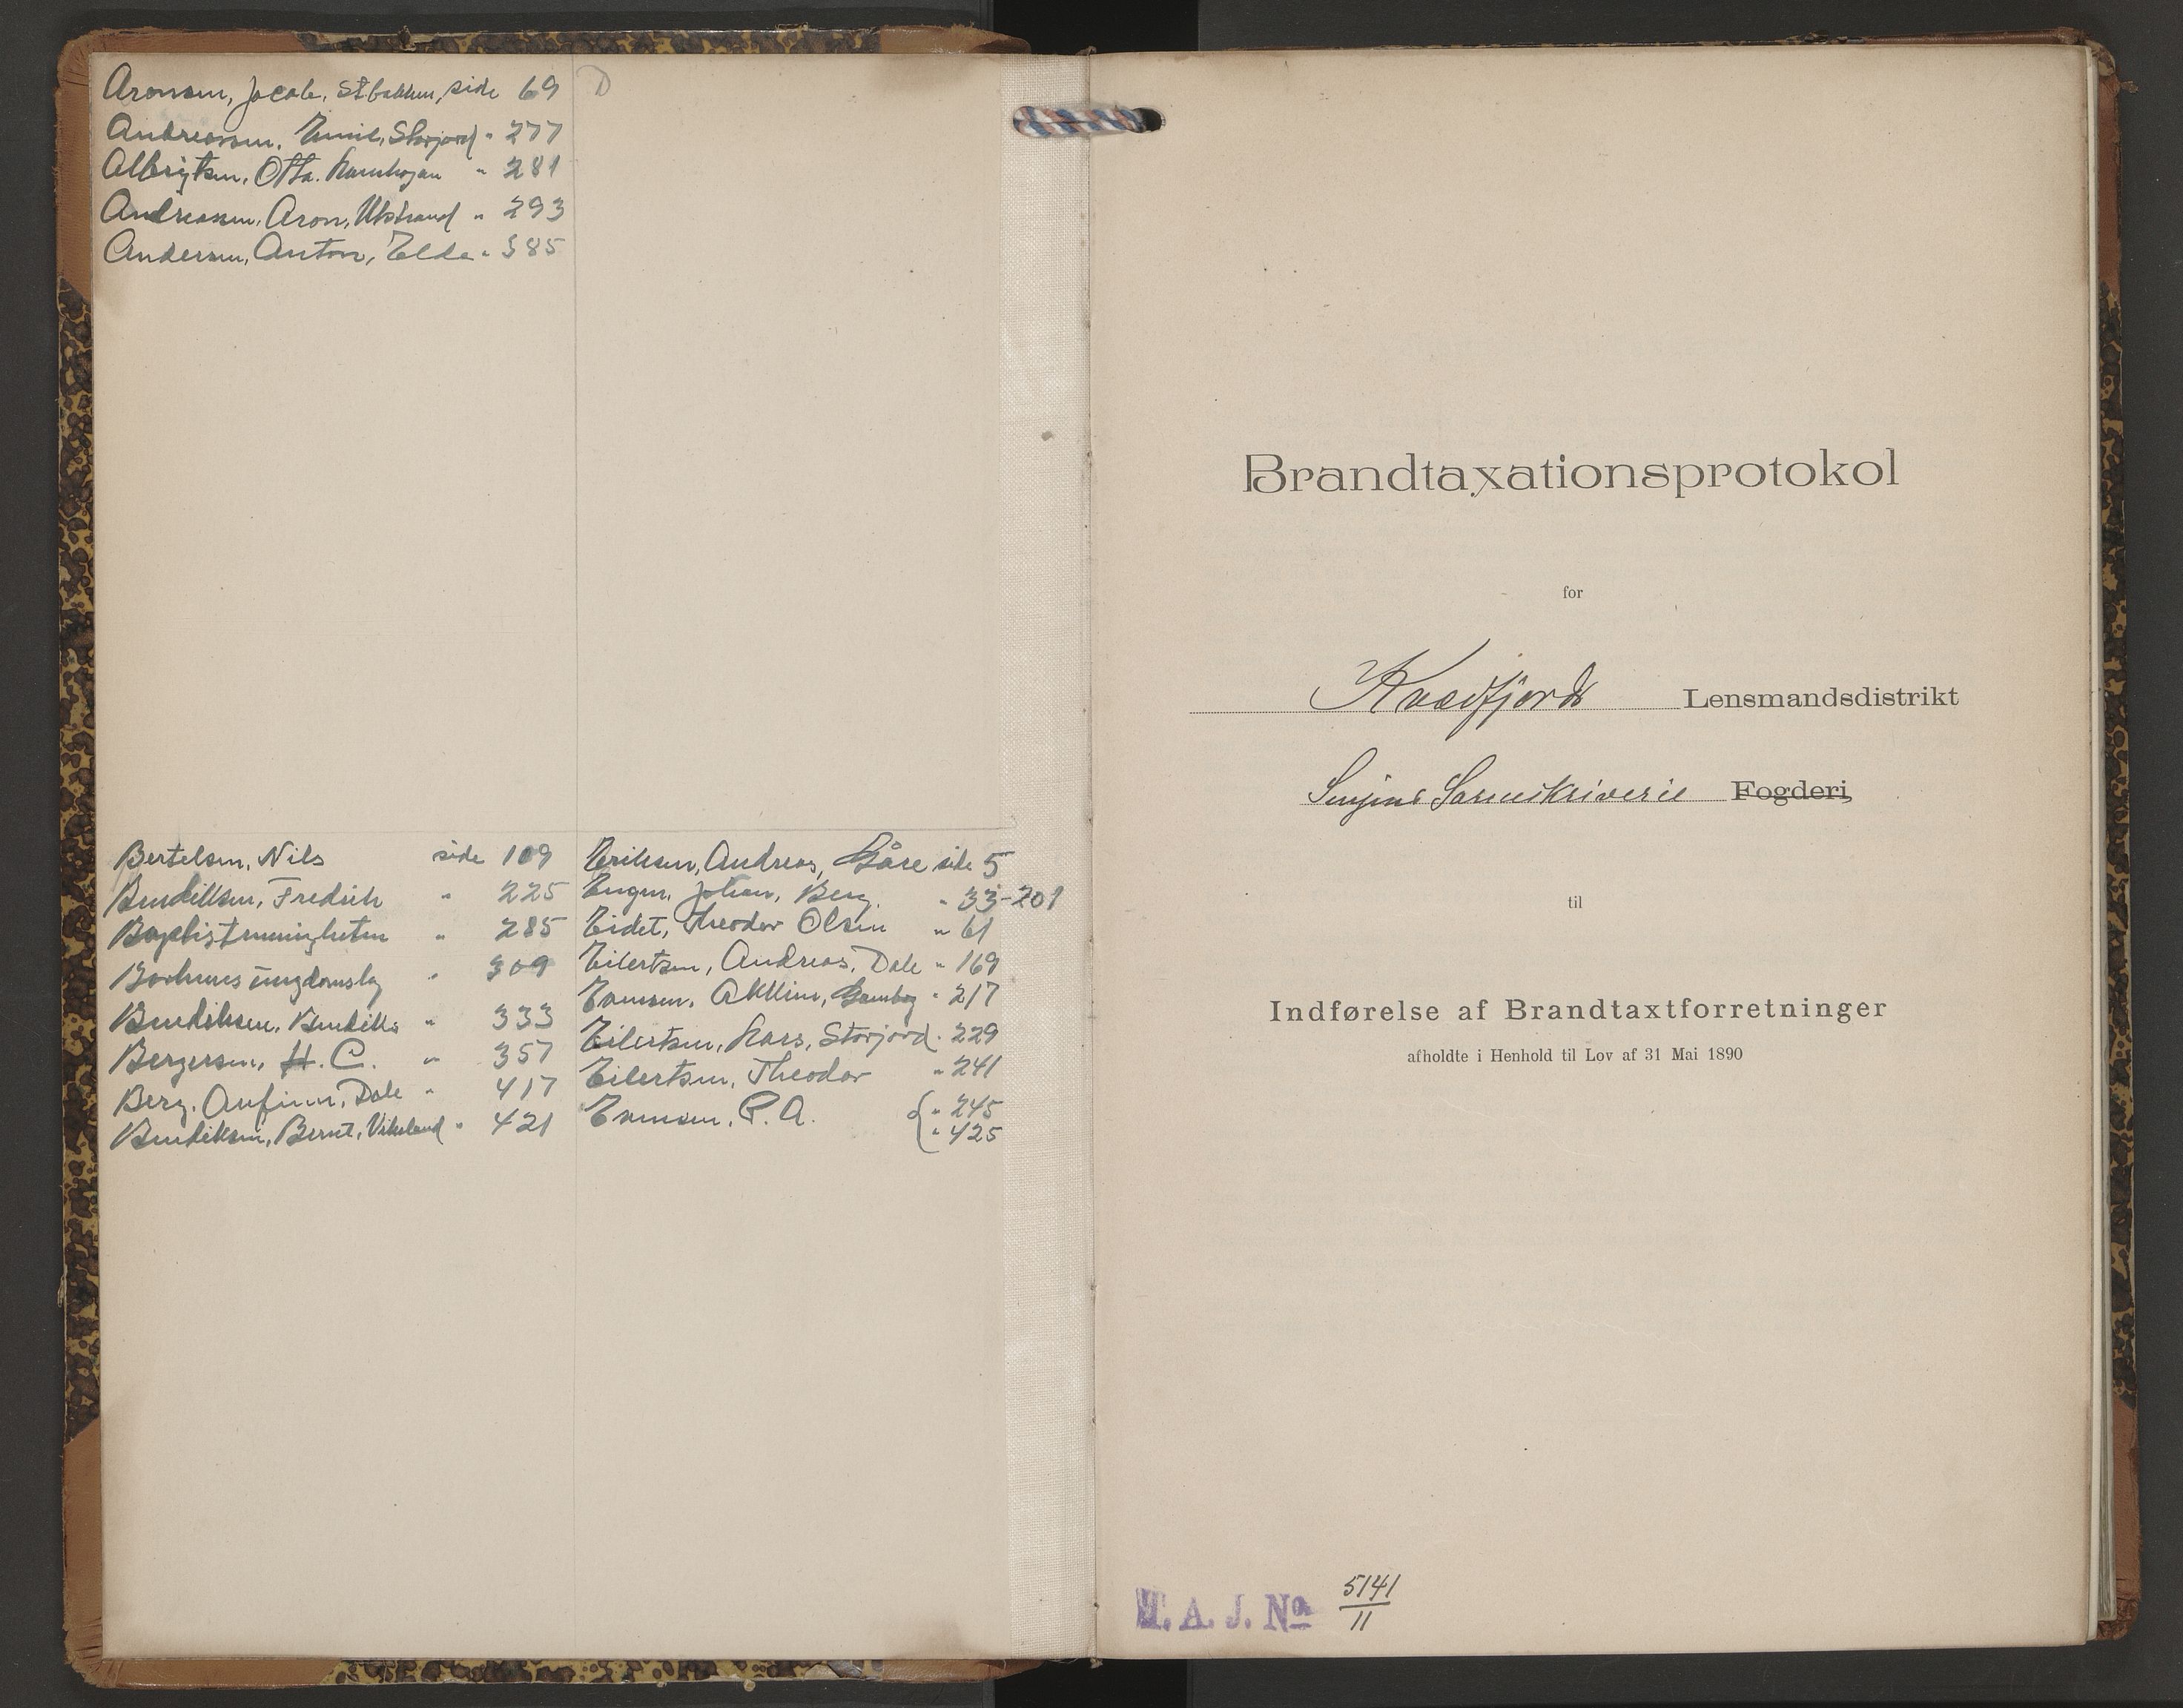 Aronsen, Jacob, Stbakken, side 69
Andreassen, Emil, Storjord " 277
Albrigtsen, Otto. " 281
Andreassen, Aron, Utstrand " 293
Andersen, Anton, Elde " 385
D
Bertelsen, Nils side 109
Bendiktsen, Fredrik " 225
Baptistmenigheten " 285
Borkenes ungdomslag " 309
Bendiksen, Bendikt " 333
Bergersen, H. C. " 357
Berg. Anfinn, Dale " 417
Bendiksen, Bernt, Vikeland " 421
Eriksen, Andreas, Gåre side 5
Engen, Johan, Berg. " 33-201
Eidet, Theodor Olsen " 61
Eilertsen, Andreas, Dale " 169
Evensen. " 217
Eilertsen, Lars, Storjord " 229
Eilertsen, Theodor " 241
Evensen, P. A. { " 245
" 425
Brandtaxationsprotokol
for
Kvæfjord Lensmandsdistrikt
Senjens Sorenskriverie Fogderi,
til
Indførelse af Brandtaxtforretninger
afholdte i Henhold til Lov af 31 Mai 1890
T. A. J. No 5141
11